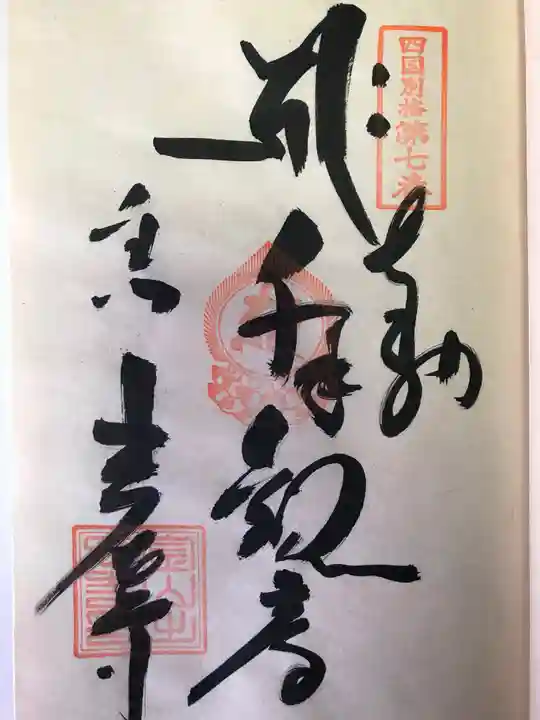 四国別格第七番
奉納
千手観音
金山
出石寺